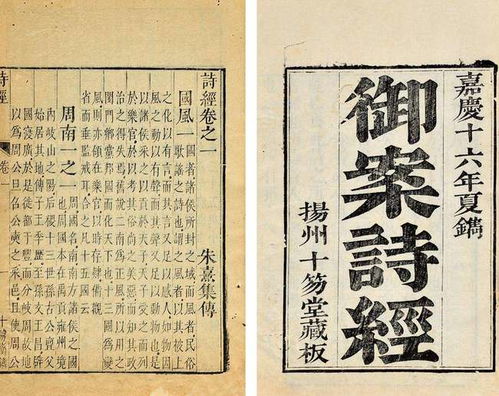 嘉慶十六年夏鐫
御案詩經
揚州十笏堂藏板
詩經卷之一 朱熹集傳
國風一 國者諸侯所封之域而風者民俗
歌謠之詩也謂之風者以其被上
之化以有言而其言又足以感人如物因
風之動以有聲而其聲又足以動物也是
以諸侯采之以貢於天子天子受之而列
於樂官於以考其俗尚之美惡而知其政
治之得失焉舊說二南為正風所以用之
閨門鄉黨邦國而化天下也十三國為變
風則亦領在樂官以時存肄備觀
省而垂監戒耳合之凡十五國云
周南一之一 周國名南南方諸侯之國
也周國本在禹貢雍州境
內岐山之陽后稷十三世孫古公亶父
始居其地傳子王季歷至孫文王昌辟
國寖廣於是徙都于豐而分岐周故地
以為周公旦召公奭之采邑且使周公
詩經 卷一